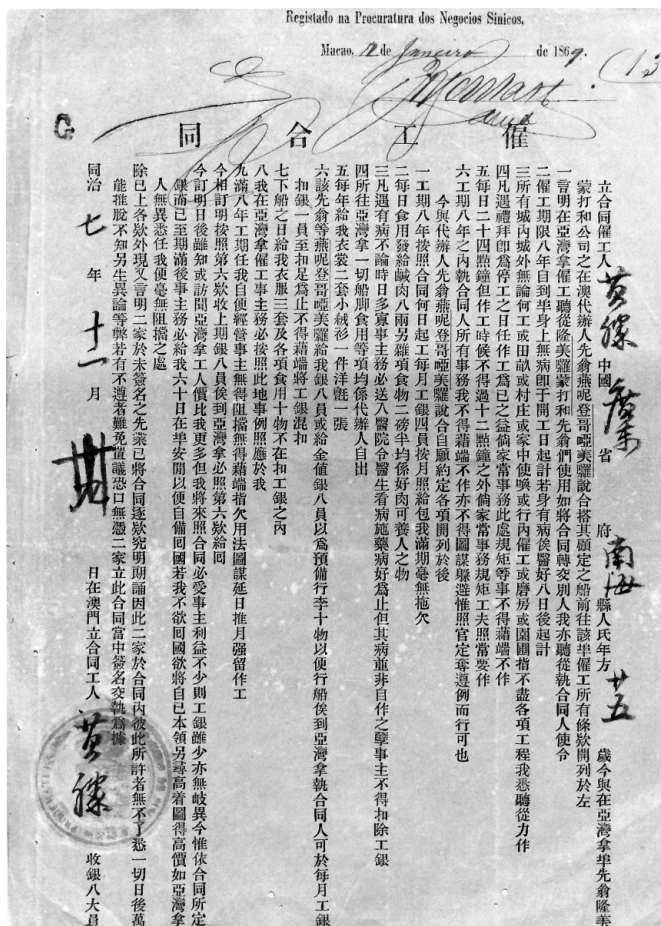 Registado na Procuratura dos Negocios Sinicos,
Macao, 12 de Janeiro de 1869.
G
催工合同
立合同催工人黃縢中國廣東省 府南海縣人氏年方廿五歲今與在亞灣拿埠先翁隆美
蒙打和公司之在澳代辦人先翁燕呢登哥啞美囉說合搭其顧定之船前往該埠催工所有條欵開列於左
一言明在亞灣拿催工聽從隆美囉蒙打和先翁們使用如將合同轉交別人我亦聽從執合同人使令
二催工期限八年自到埠身上無病卽于開工日起計若身有病俟醫好八日後起計
三所有城內城外無論何工或田畝或村庄或家中使喚或行內催工或磨房或園圃指不盡各項工程我悉聽從力作
四凡遇禮拜卽為停工之日任作工為已之益倘家常事務此處規矩等事不得藉端不作
五每日二十四點鐘但作工時候不得過十二點鐘之外倘家常事務規矩工夫照常要作
六工期八年之內執合同人所有事務我不得藉端不作亦不得圖謀躱避惟照官定奪遵例而行可也
今與代辦人先翁燕呢登哥啞美囉說合自願約定各項開列於後
一工期八年按照合同何日起工每月工銀四員按月照給包我滿期毫無拖欠
二每日食用發給鹹肉八兩另雜項食物二磅半均係好肉可養人之物
三凡遇有病不論時日多寡事主務必送入醫院令醫生看病施藥病好為止但其病並非自作之孽事主不得扣除工銀
四所往亞灣拿一切船脚食用等項均係代辦人自出
五每年給我衣裳二套小絨衫一件洋氈一張
六該先翁等燕呢登哥啞美囉給我銀八員或給金值銀八員以為預備行李十物以便行船俟到亞灣拿執合同人可於每月工銀
扣銀一員至扣足為止不得藉端將工銀混扣
七下船之日給我衣服三套及各項食用十物不在扣工銀之內
八我在亞灣拿催工事主務必按照此地事例照應於我
九滿八年工期任我自便經營事主無得阻擋無得藉端指欠用法圖謀延日推月强留作工
今相訂明按照第六欵收上期銀八員俟到亞灣拿必照第六欵給囘
今訂明日後雖知或訪聞亞灣拿工人價比我更多但我將來照合同必受事主利益不少則工銀雖少亦無岐異今惟依合同所定
銀而已至期滿後事主務必給我六十日在埠安閒以便自備囘國若我不欲囘國欲將自已本領另尋高着圖得高價如亞灣拿
人無異悉任我便毫無阻擋之處
除已上各欵外現又言明二家於未簽名之先業已將合同逐欵究明朗誦因此二家於合同內彼此所許者無不了悉一切日後萬
能推脫不知另生異論等弊若有不遵者難免置議恐口無憑二家立此合同當中簽名交執為據
同治七年十一月 日在澳門立合同工人黃縢 收銀八大員